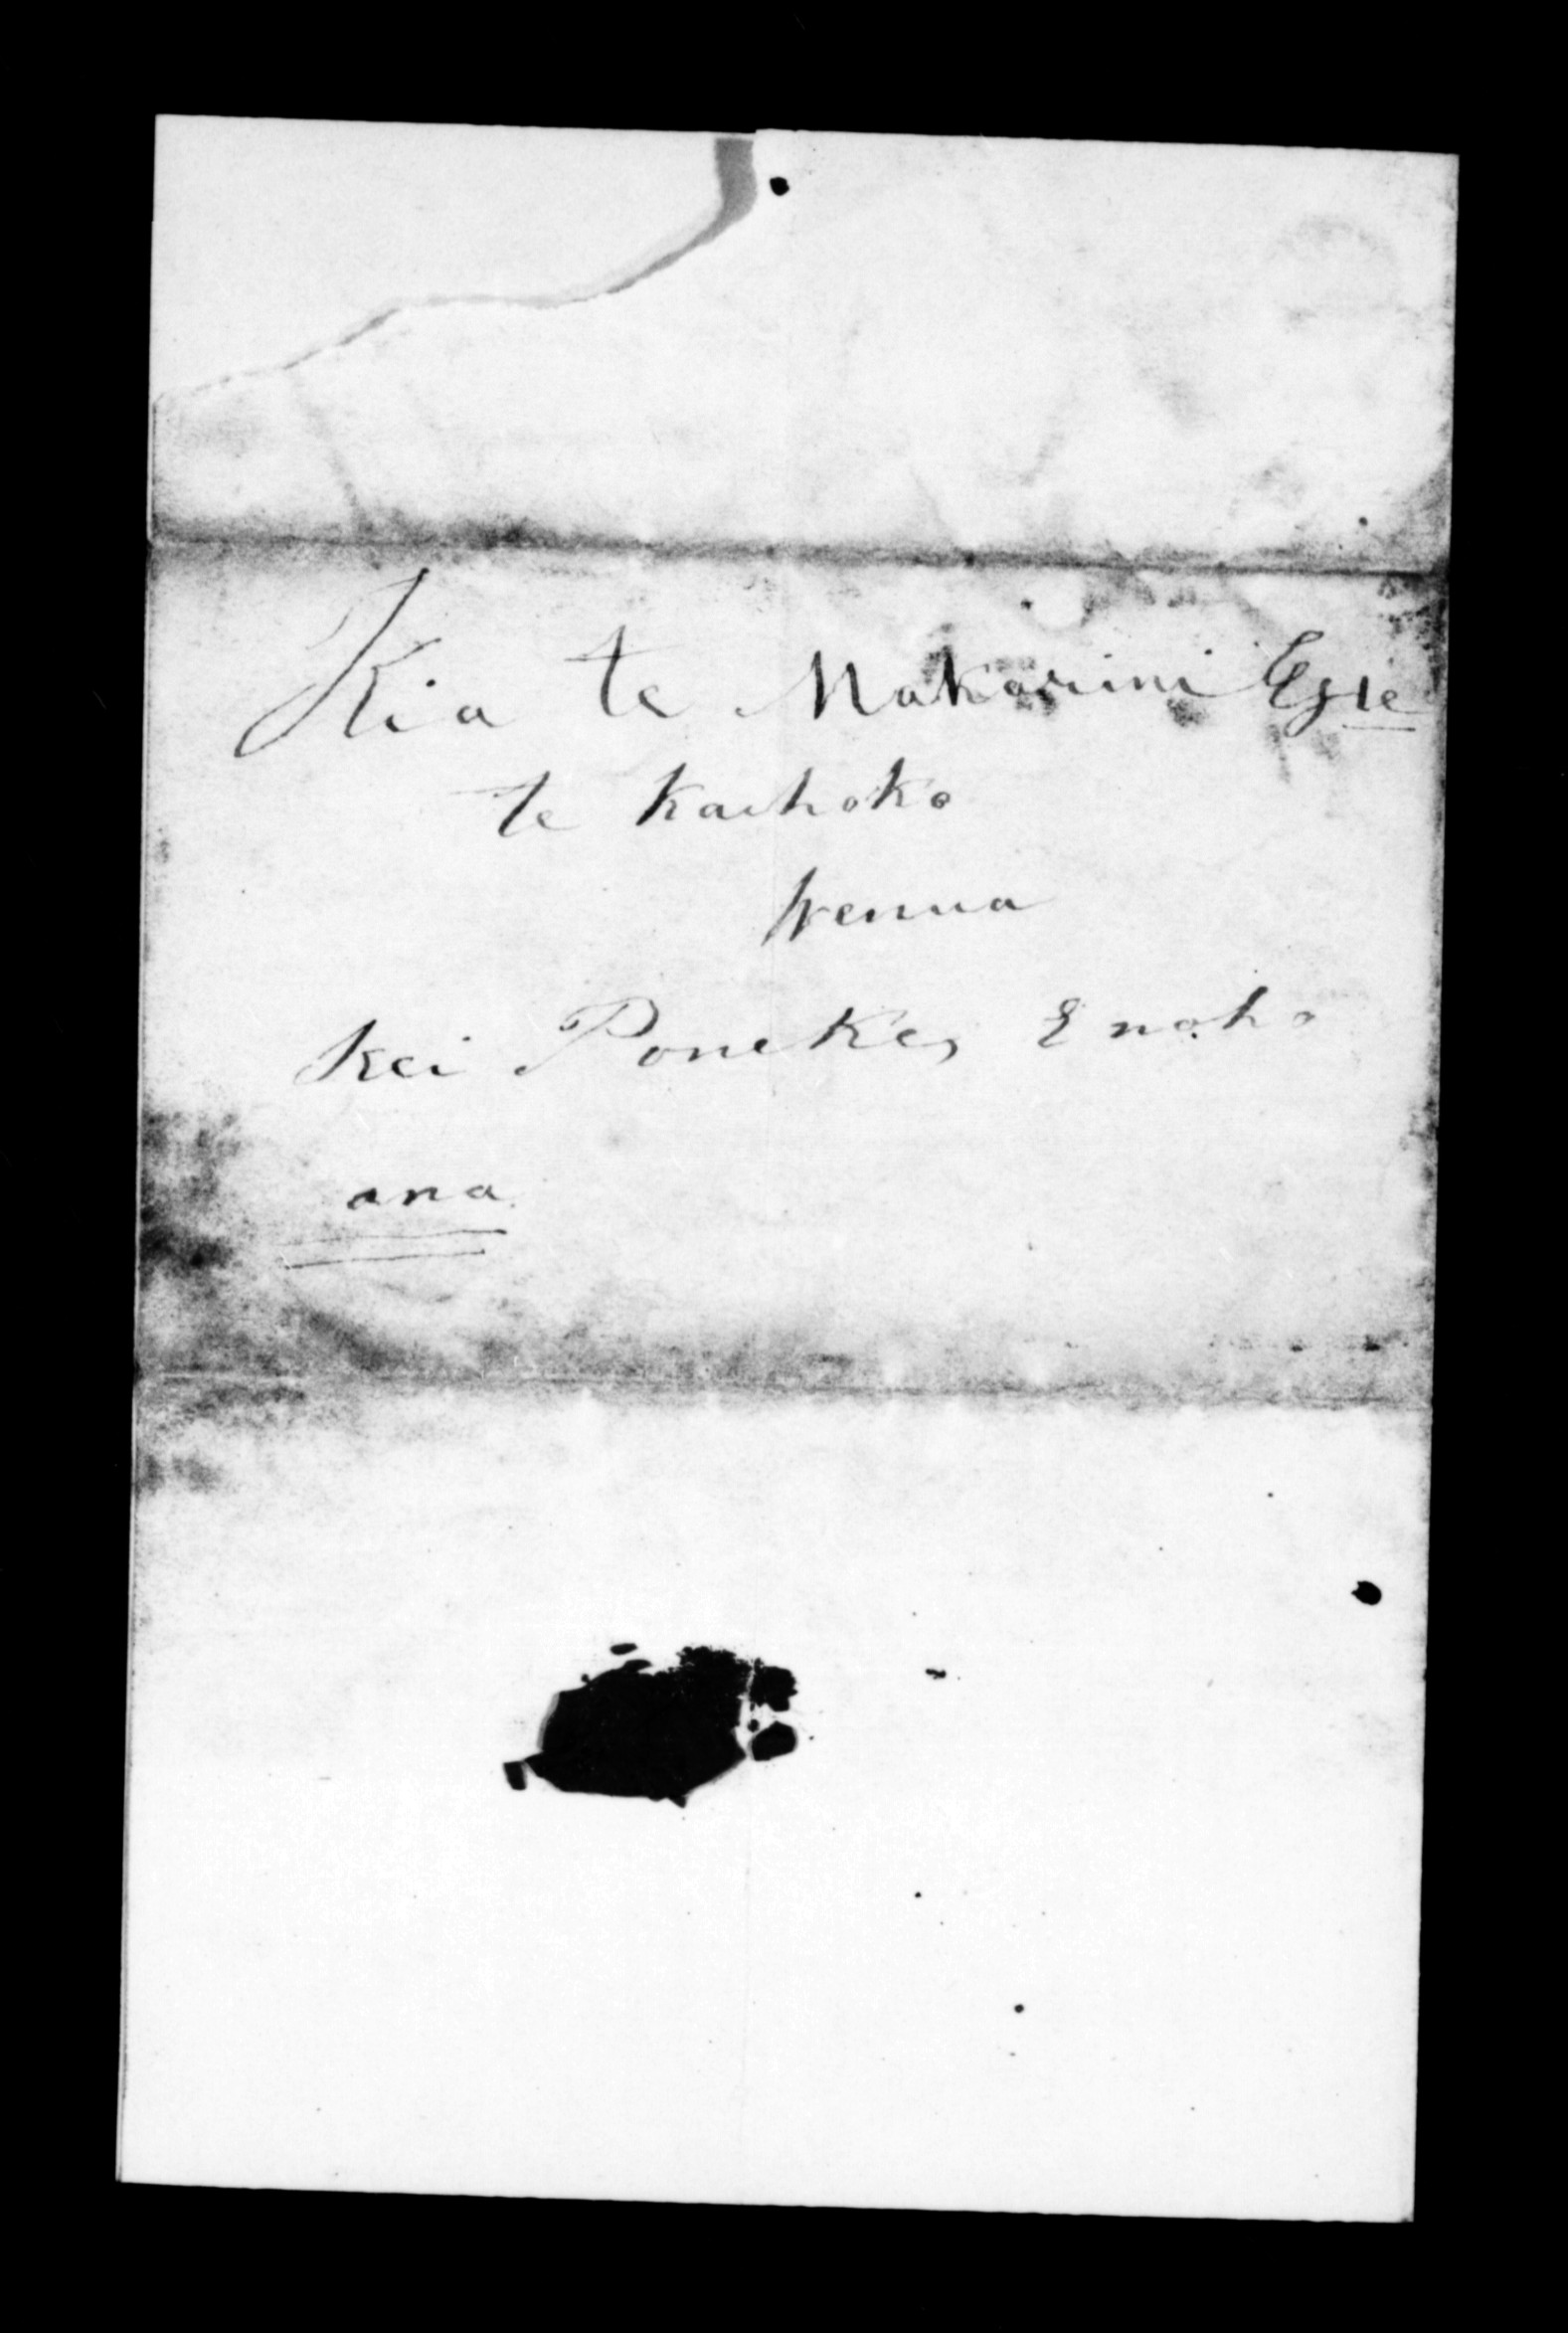 Kia te Makarini Esqre
te Kaihoko
Wenua
Kei Poneke, E noho
ana